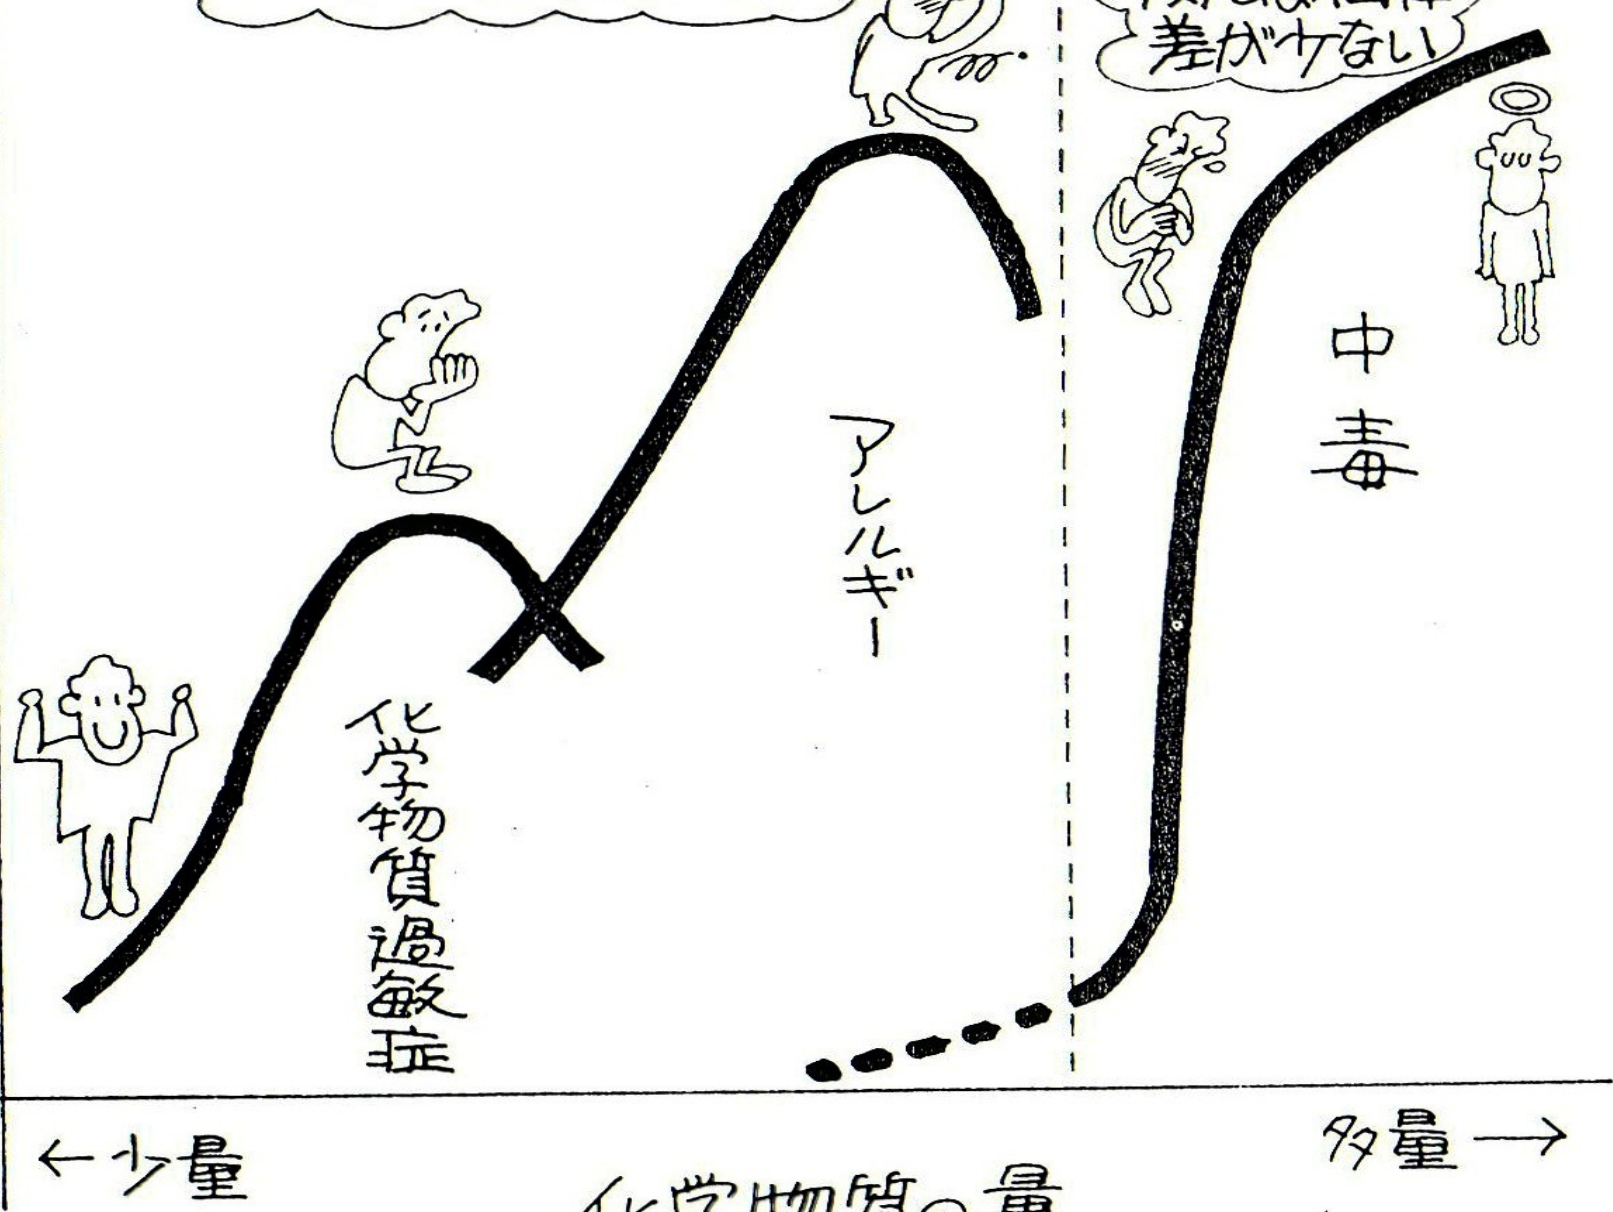 差が少ない
中毒
アレルギー
化学物質過敏症
←少量
多量→
化学物質の量